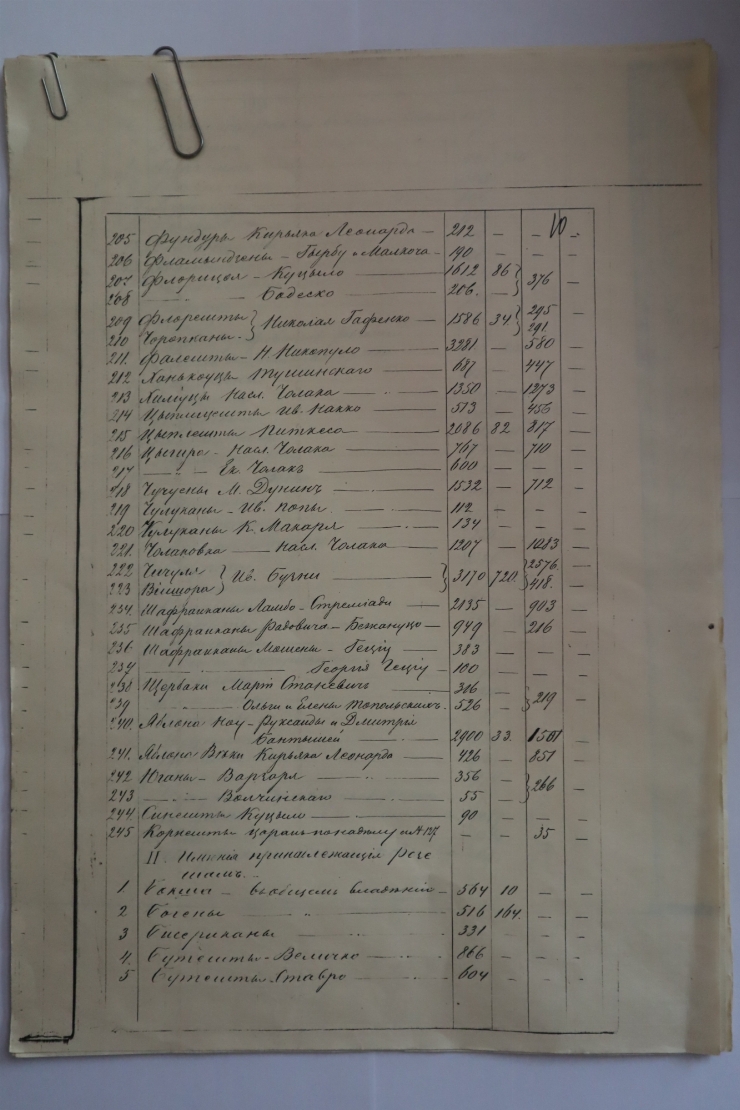 10
205 Фундуры Кирьяка Леонарда — 212 — — —
206 Фламындзены - Гырбу и Малкоча — 190 — — —
207 Флорицоя - Куцыло — 1612 86 376
208 — — Бодеско — 206
209 Флорешты Николая Гафенко — 1586 34 295
210 Чоропканы 291
211 Фалешты - Н. Никопуло — 3281 — 580 —
212 Ханькоуцы Тушинскаго — 687 — 447 —
213 Хилiуцы Насл. Чолака — 1350 — 1273 —
214 Ив. Накко — 513 — 456 —
215 Цыплешты — 2086 82 817 —
216 Цыгира - Насл. Чолака — 767 — 710 —
217 — — Ек. Чолакъ — 600 — — —
218 Чучуены М. Дунинъ — 1532 — 712 —
219 Чулуканы - Ив. Попы — 112 — — —
220 Чулуканы К. Макаря — 134 — — —
221 Чолаковка — Насл. Чолака — 1207 — 1013 —
222 Ив. Бугни — 3170 720 2576 —
223 Вiишора 418
234 Шафранканы Ламбо - Стремiади — 2135 — 903 —
235 Шафранканы Радовича - Бежануцо — 949 — 216 —
236 Шафранканы — Гецiу — 383 — — —
237 — — Георгiя Гецiу — 100 — — —
238 Щербаки Март. Станевичъ 316 — 219 —
239 — — Ольги и Елены Топольскихъ 526 —
240 Яблона Ноу - Руксанды и Дмитрiя
Бантышей — 2900 33 1501 —
241 Яблона Векки Кирьяка Леонарда — 426 — 851 —
242 Юганы - Варзаря — 356 — 266 —
243 — — Волчинскаго — 55 —
244 Синешты Куцыло — 90 — — —
245 Корнешты царань по надѣлу — — 35 —
II Имѣнiя принадлежащiя резе
шамъ.
1 Бокша — вообщемъ владѣнiи — 364 10 — —
2 Богены — 516 164 — —
3 Бисериканы — 331 — — —
4 Бутешты - Величко — 866 — — —
5 Бутешты Ставро — 604 — — —